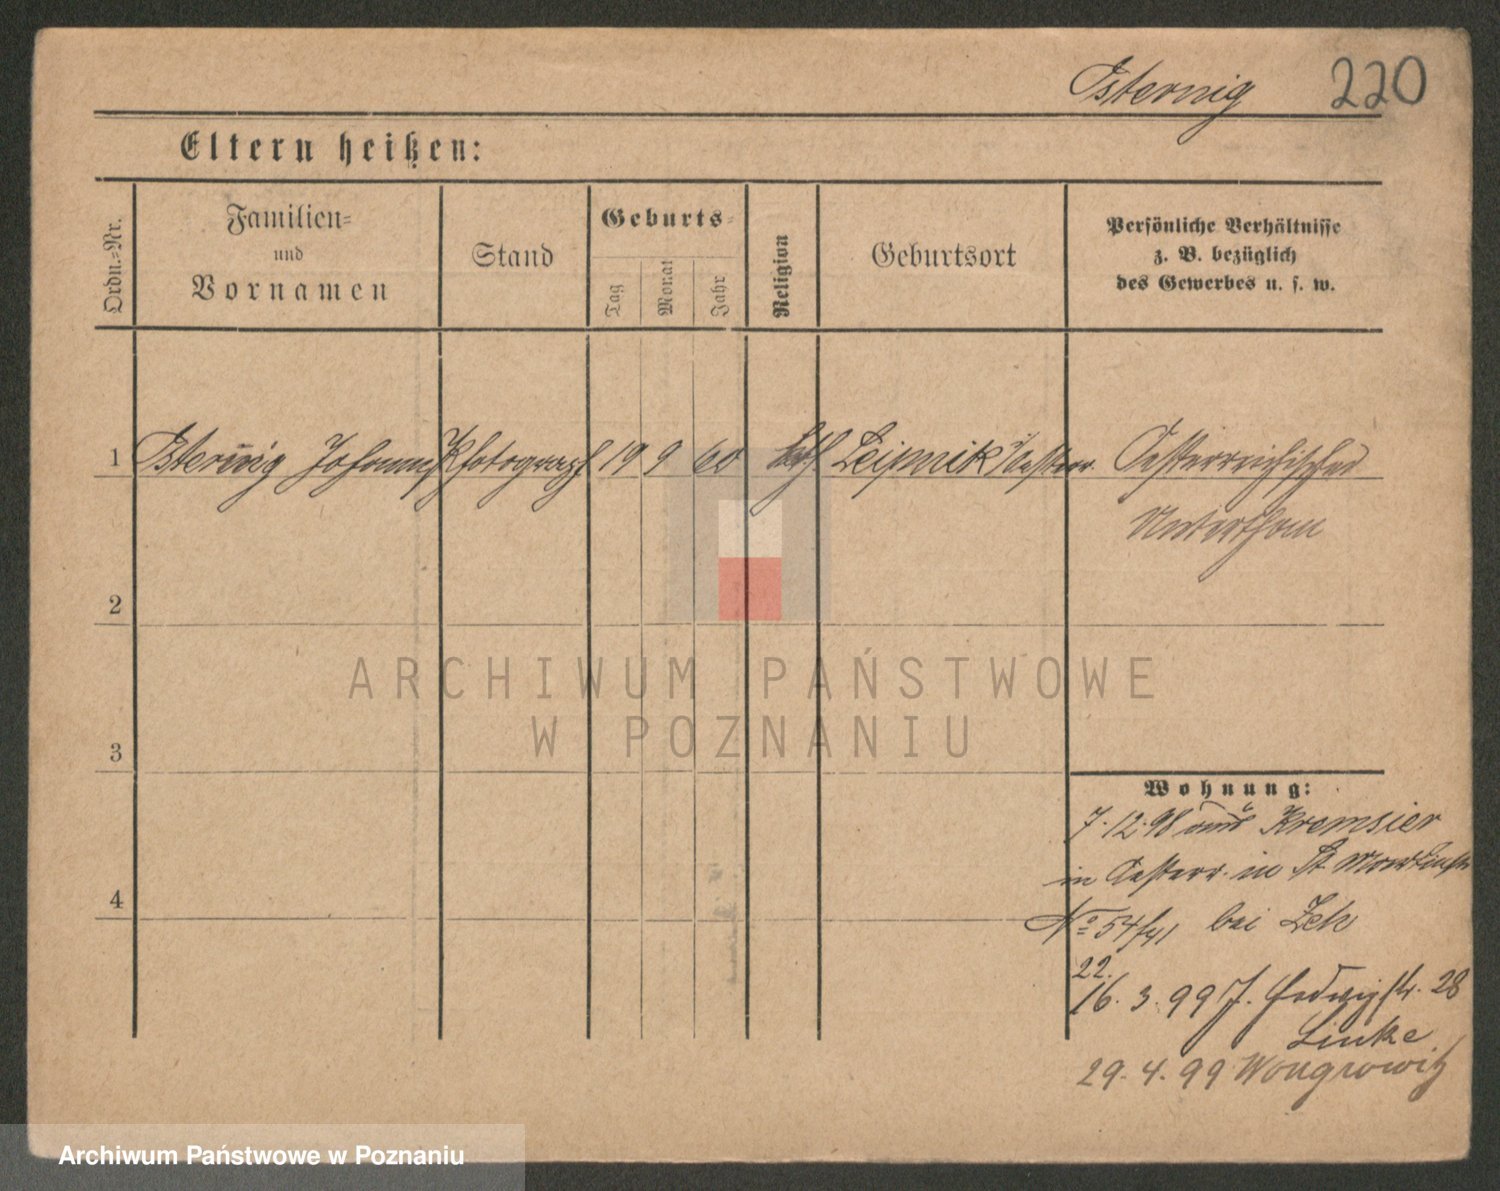 Isternig 220
Eltern heißen:
Ordn.-Nr.
Familien-
und
Vornamen
Stand
Geburts-
Tag
Monat
Jahr
Religion
Geburtsort
Persönliche Verhältnisse
z. B. bezüglich
des Gewerbes u. s. w.
1 Isternig Johann Photograph 19 9 60 kath Leipnik i/Oesterr. Oesterreichischer
Unterthan
2
3
4
ARCHIWUM PAŃSTWOWE
W POZNANIU
Wohnung:
7.12.98 aus Kremsier
in Oesterr. in St Martinstr
No 54/ bei Zeh
22.
16. 3. 99 J. Hedwigstr. 28
Linke
29. 4. 99 Wongrowitz
Archiwum Państwowe w Poznaniu